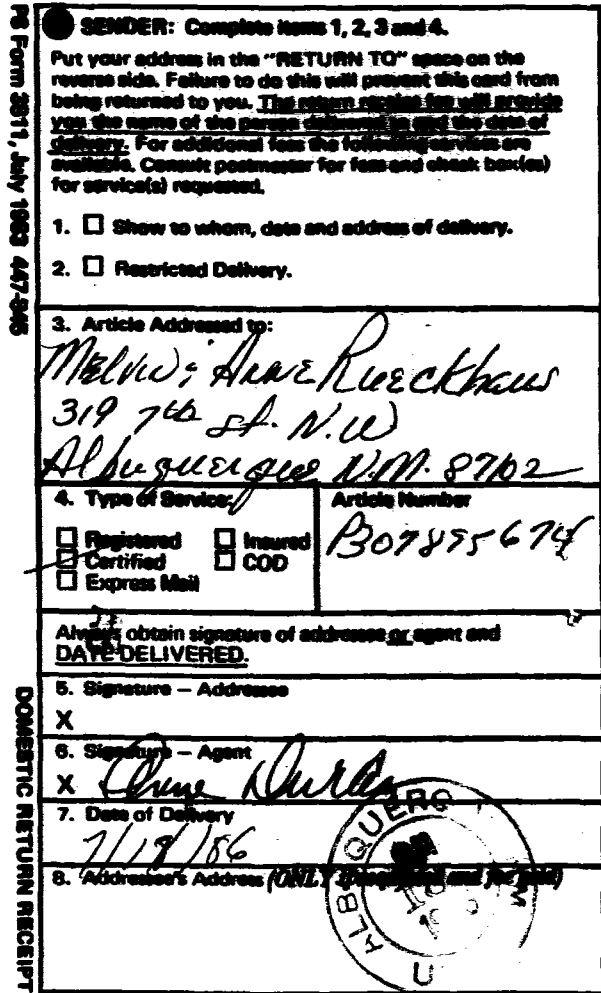 PS Form 3811, July 1983 447-845
SENDER: Complete items 1, 2, 3 and 4.
Put your address in the "RETURN TO" space on the
reverse side. Failure to do this will prevent this card from
being returned to you. The return receipt fee will provide
you the name of the person delivered to and the date of
delivery. For additional fees the following services are
available. Consult postmaster for fees and check box(es)
for service(s) requested.
1. ☐ Show to whom, date and address of delivery.
2. ☐ Restricted Delivery.
3. Article Addressed to:
Melvin & Anne Rueckhaus
319 7th St. N.W
Albuquerque N.M. 87102
4. Type of Service:
Article Number
☐ Registered ☐ Insured
☐ Certified ☐ COD
☐ Express Mail
P307895674
Always obtain signature of addressee or agent and
DATE DELIVERED.
5. Signature – Addressee
X
6. Signature – Agent
X
7. Date of Delivery
7/18/86
8. Addressee's Address (ONLY if requested and fee paid)
ALBUQUERQ
DOMESTIC RETURN RECEIPT